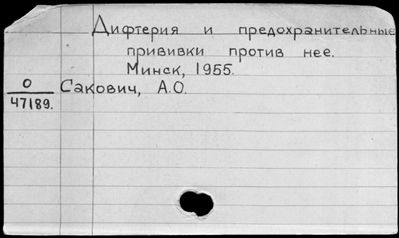 Дифтерия и предохранительные
прививки против нее.
Минск, 1955.
О
47189.
Сакович, А.О.